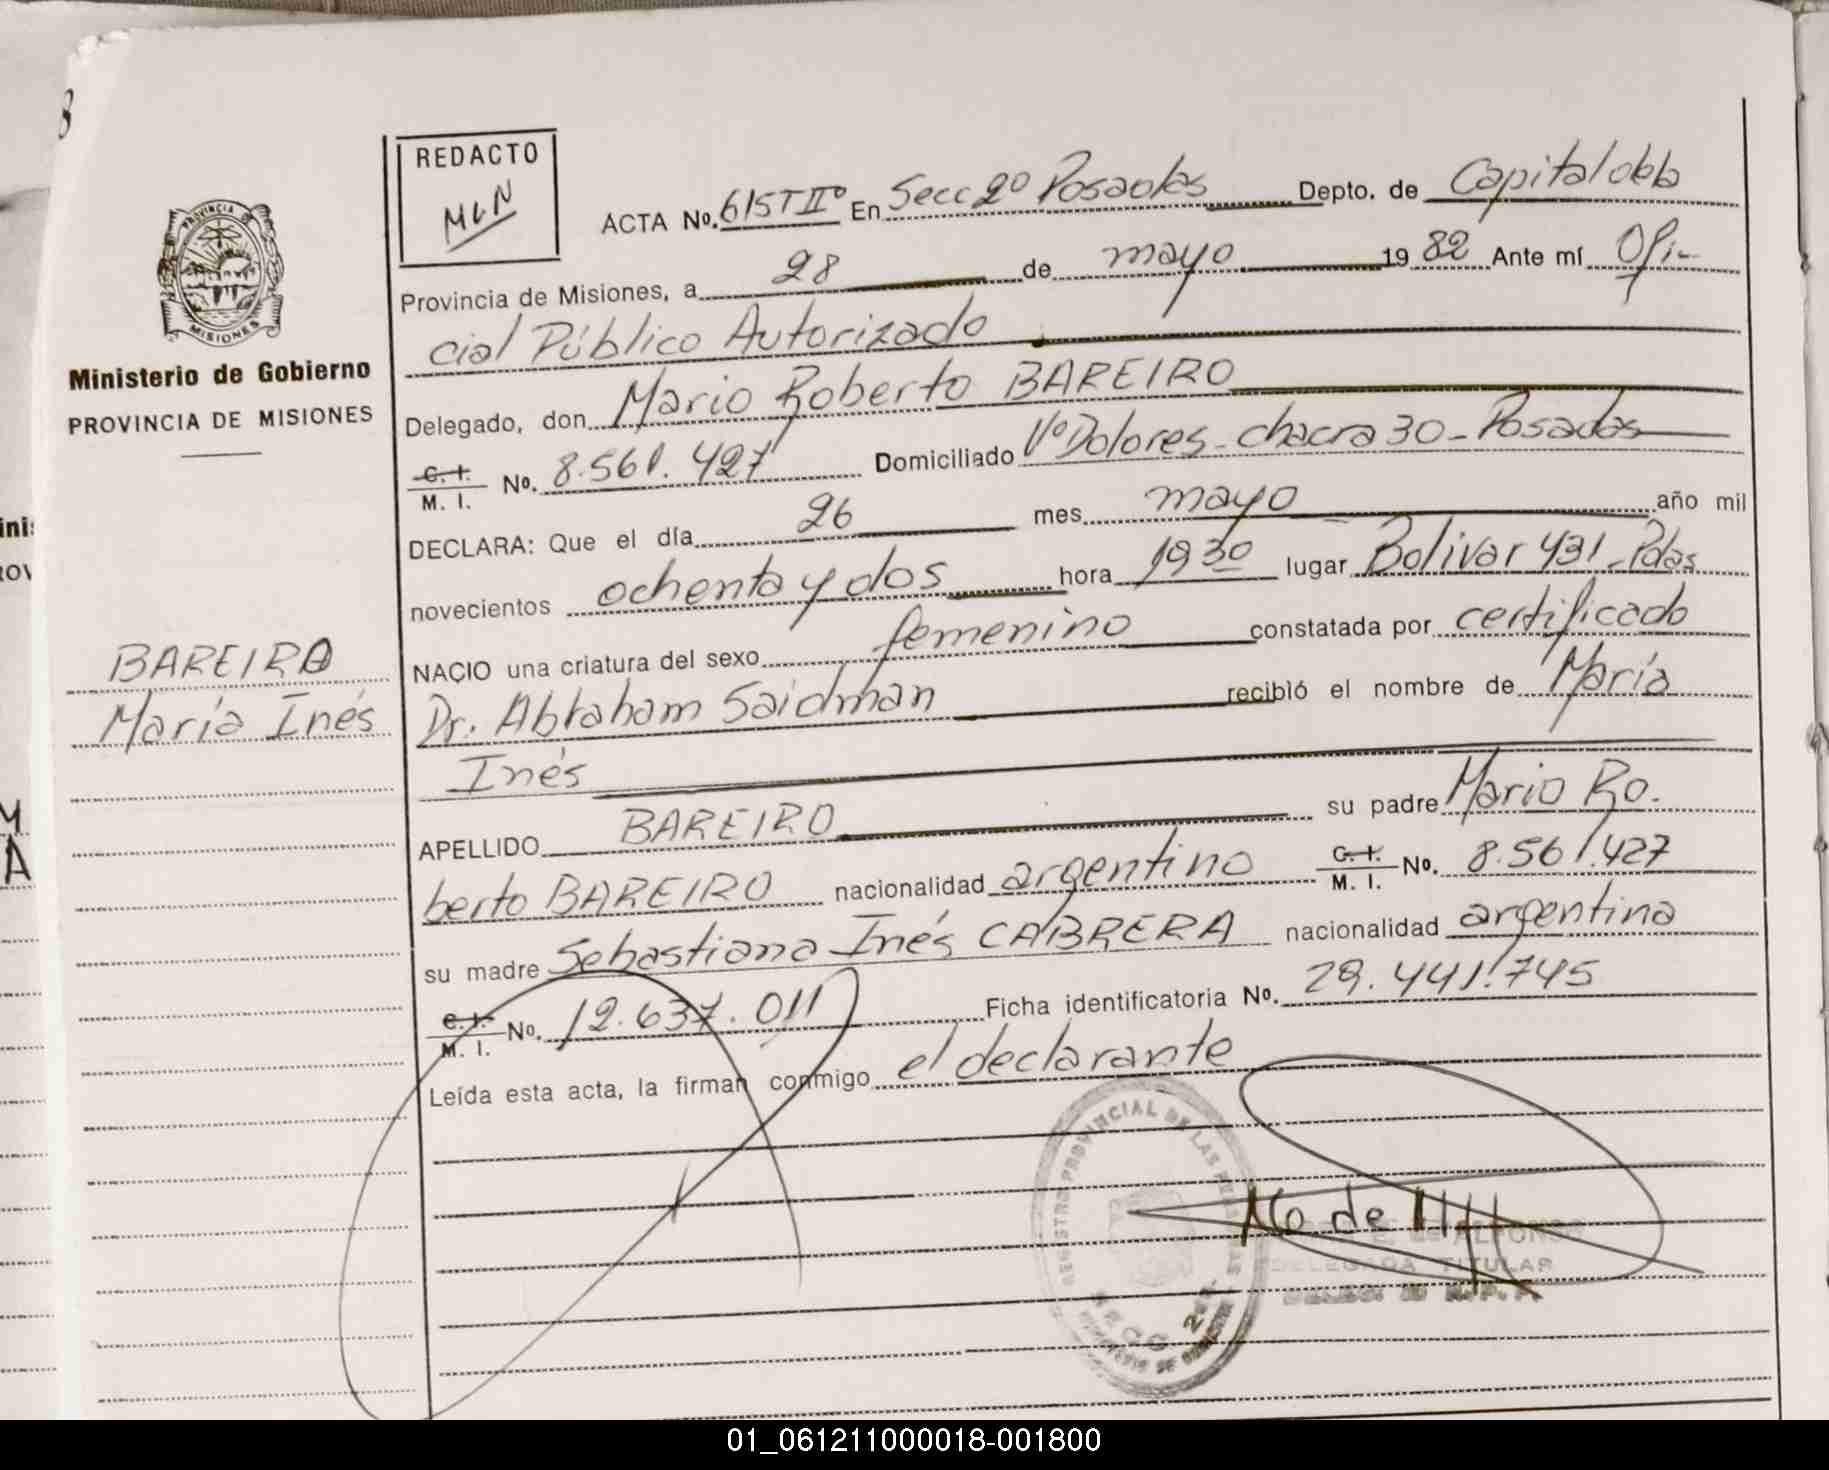 8
REDACTO
MLN
ACTA No. 615TIIº En Secc 2º Posadas Depto. de Capital de la
Provincia de Misiones, a 28 de mayo 19 82 Ante mí Ofi-
cial Público Autorizado
Delegado, don Mario Roberto BAREIRO
C. I. / M. I. No. 8.561.427 Domiciliado Vº Dolores - chacra 30 - Posadas
DECLARA: Que el día 26 mes mayo año mil
novecientos ochenta y dos hora 19 30 lugar Bolivar 431 - Pdas
NACIO una criatura del sexo femenino constatada por certificado
Dr. Abraham Saidman recibió el nombre de María
Inés
APELLIDO BAREIRO su padre Mario Ro.
berto BAREIRO nacionalidad argentino C. I. / M. I. No. 8.561.427
su madre Sebastiana Inés CABRERA nacionalidad argentina
C. I. / M. I. No. 12.637.011 Ficha identificatoria No. 29.441.745
Leída esta acta, la firman conmigo el declarante
PROVINCIA DE
MISIONES
Ministerio de Gobierno
PROVINCIA DE MISIONES
BAREIRO
María Inés
REGISTRO PROVINCIAL DE LAS PERSONAS
SECC 2da.
DE ALFONSO
DELEGADA TITULAR
01_061211000018-001800